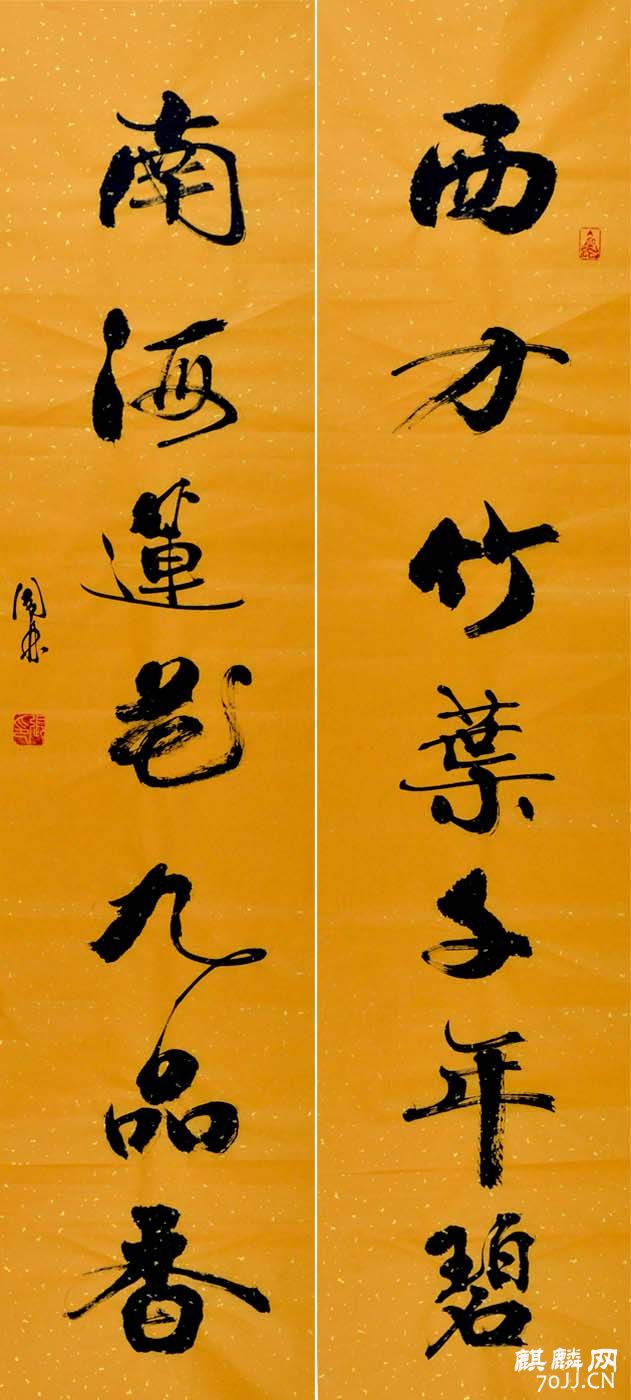 西方竹葉千年碧
南海蓮花九品香
麒麟网
70JJ.CN